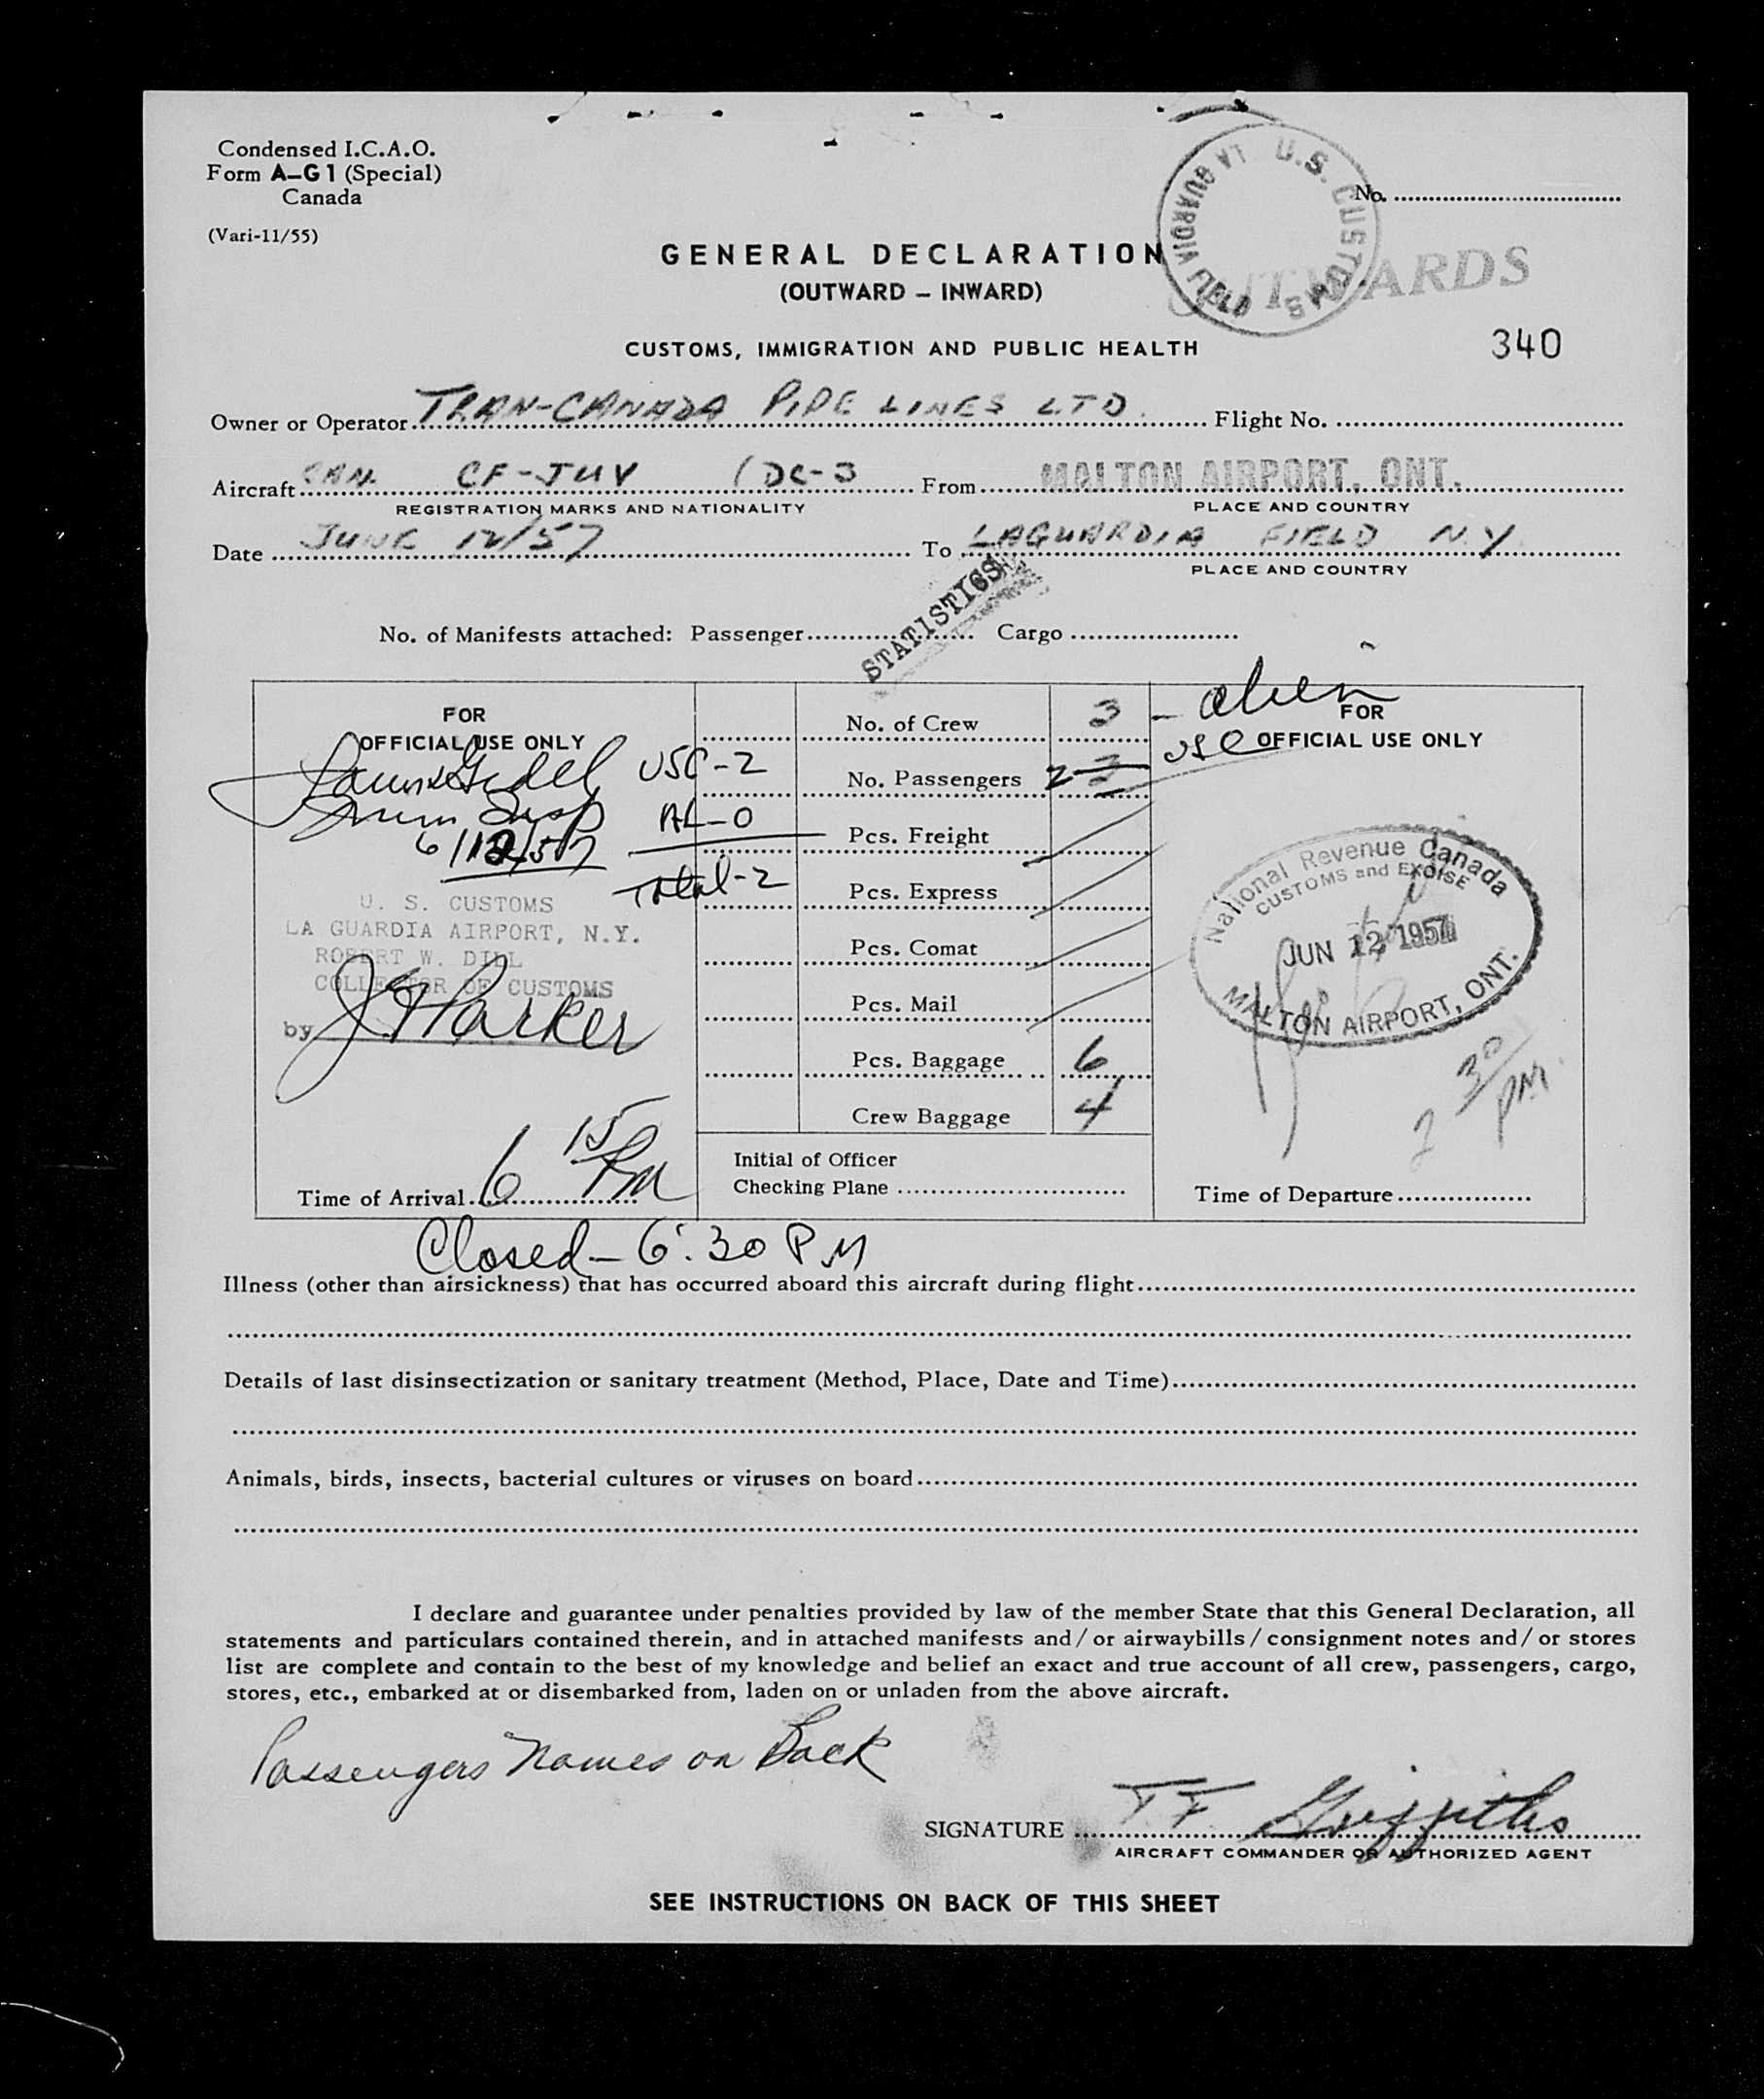 Condensed I.C.A.O.
Form A–G1 (Special)
Canada
(Vari-11/55)
U.S. CUSTOMS
LA GUARDIA FIELD
No.
GENERAL DECLARATION
(OUTWARD – INWARD)
CUSTOMS, IMMIGRATION AND PUBLIC HEALTH
340
Owner or Operator TRAN-CANADA PIPE LINES LTD. Flight No.
Aircraft CAN. CF-JUV (DC-3 From MALTON AIRPORT, ONT.
REGISTRATION MARKS AND NATIONALITY PLACE AND COUNTRY
Date JUNE 12/57 To LAGUARDIA FIELD N.Y.
PLACE AND COUNTRY
STATISTICS
No. of Manifests attached: Passenger Cargo
FOR
OFFICIAL USE ONLY
6/12/57
USC-2
AL-0
Total-2
U. S. CUSTOMS
LA GUARDIA AIRPORT, N.Y.
ROBERT W. DILL
COLLECTOR OF CUSTOMS
by J Parker
Time of Arrival 6 15 PM
No. of Crew 3 - alien
No. Passengers 2 3 USC
Pcs. Freight
Pcs. Express
Pcs. Comat
Pcs. Mail
Pcs. Baggage 6
Crew Baggage 4
Initial of Officer
Checking Plane
FOR
OFFICIAL USE ONLY
National Revenue Canada
CUSTOMS and EXCISE
JUN 12 1957
MALTON AIRPORT, ONT.
2 30 PM.
Time of Departure
Closed - 6:30 PM
Illness (other than airsickness) that has occurred aboard this aircraft during flight
Details of last disinsectization or sanitary treatment (Method, Place, Date and Time)
Animals, birds, insects, bacterial cultures or viruses on board
I declare and guarantee under penalties provided by law of the member State that this General Declaration, all
statements and particulars contained therein, and in attached manifests and/or airwaybills/consignment notes and/or stores
list are complete and contain to the best of my knowledge and belief an exact and true account of all crew, passengers, cargo,
stores, etc., embarked at or disembarked from, laden on or unladen from the above aircraft.
Passengers Names on Back
SIGNATURE T F Griffiths
AIRCRAFT COMMANDER OR AUTHORIZED AGENT
SEE INSTRUCTIONS ON BACK OF THIS SHEET